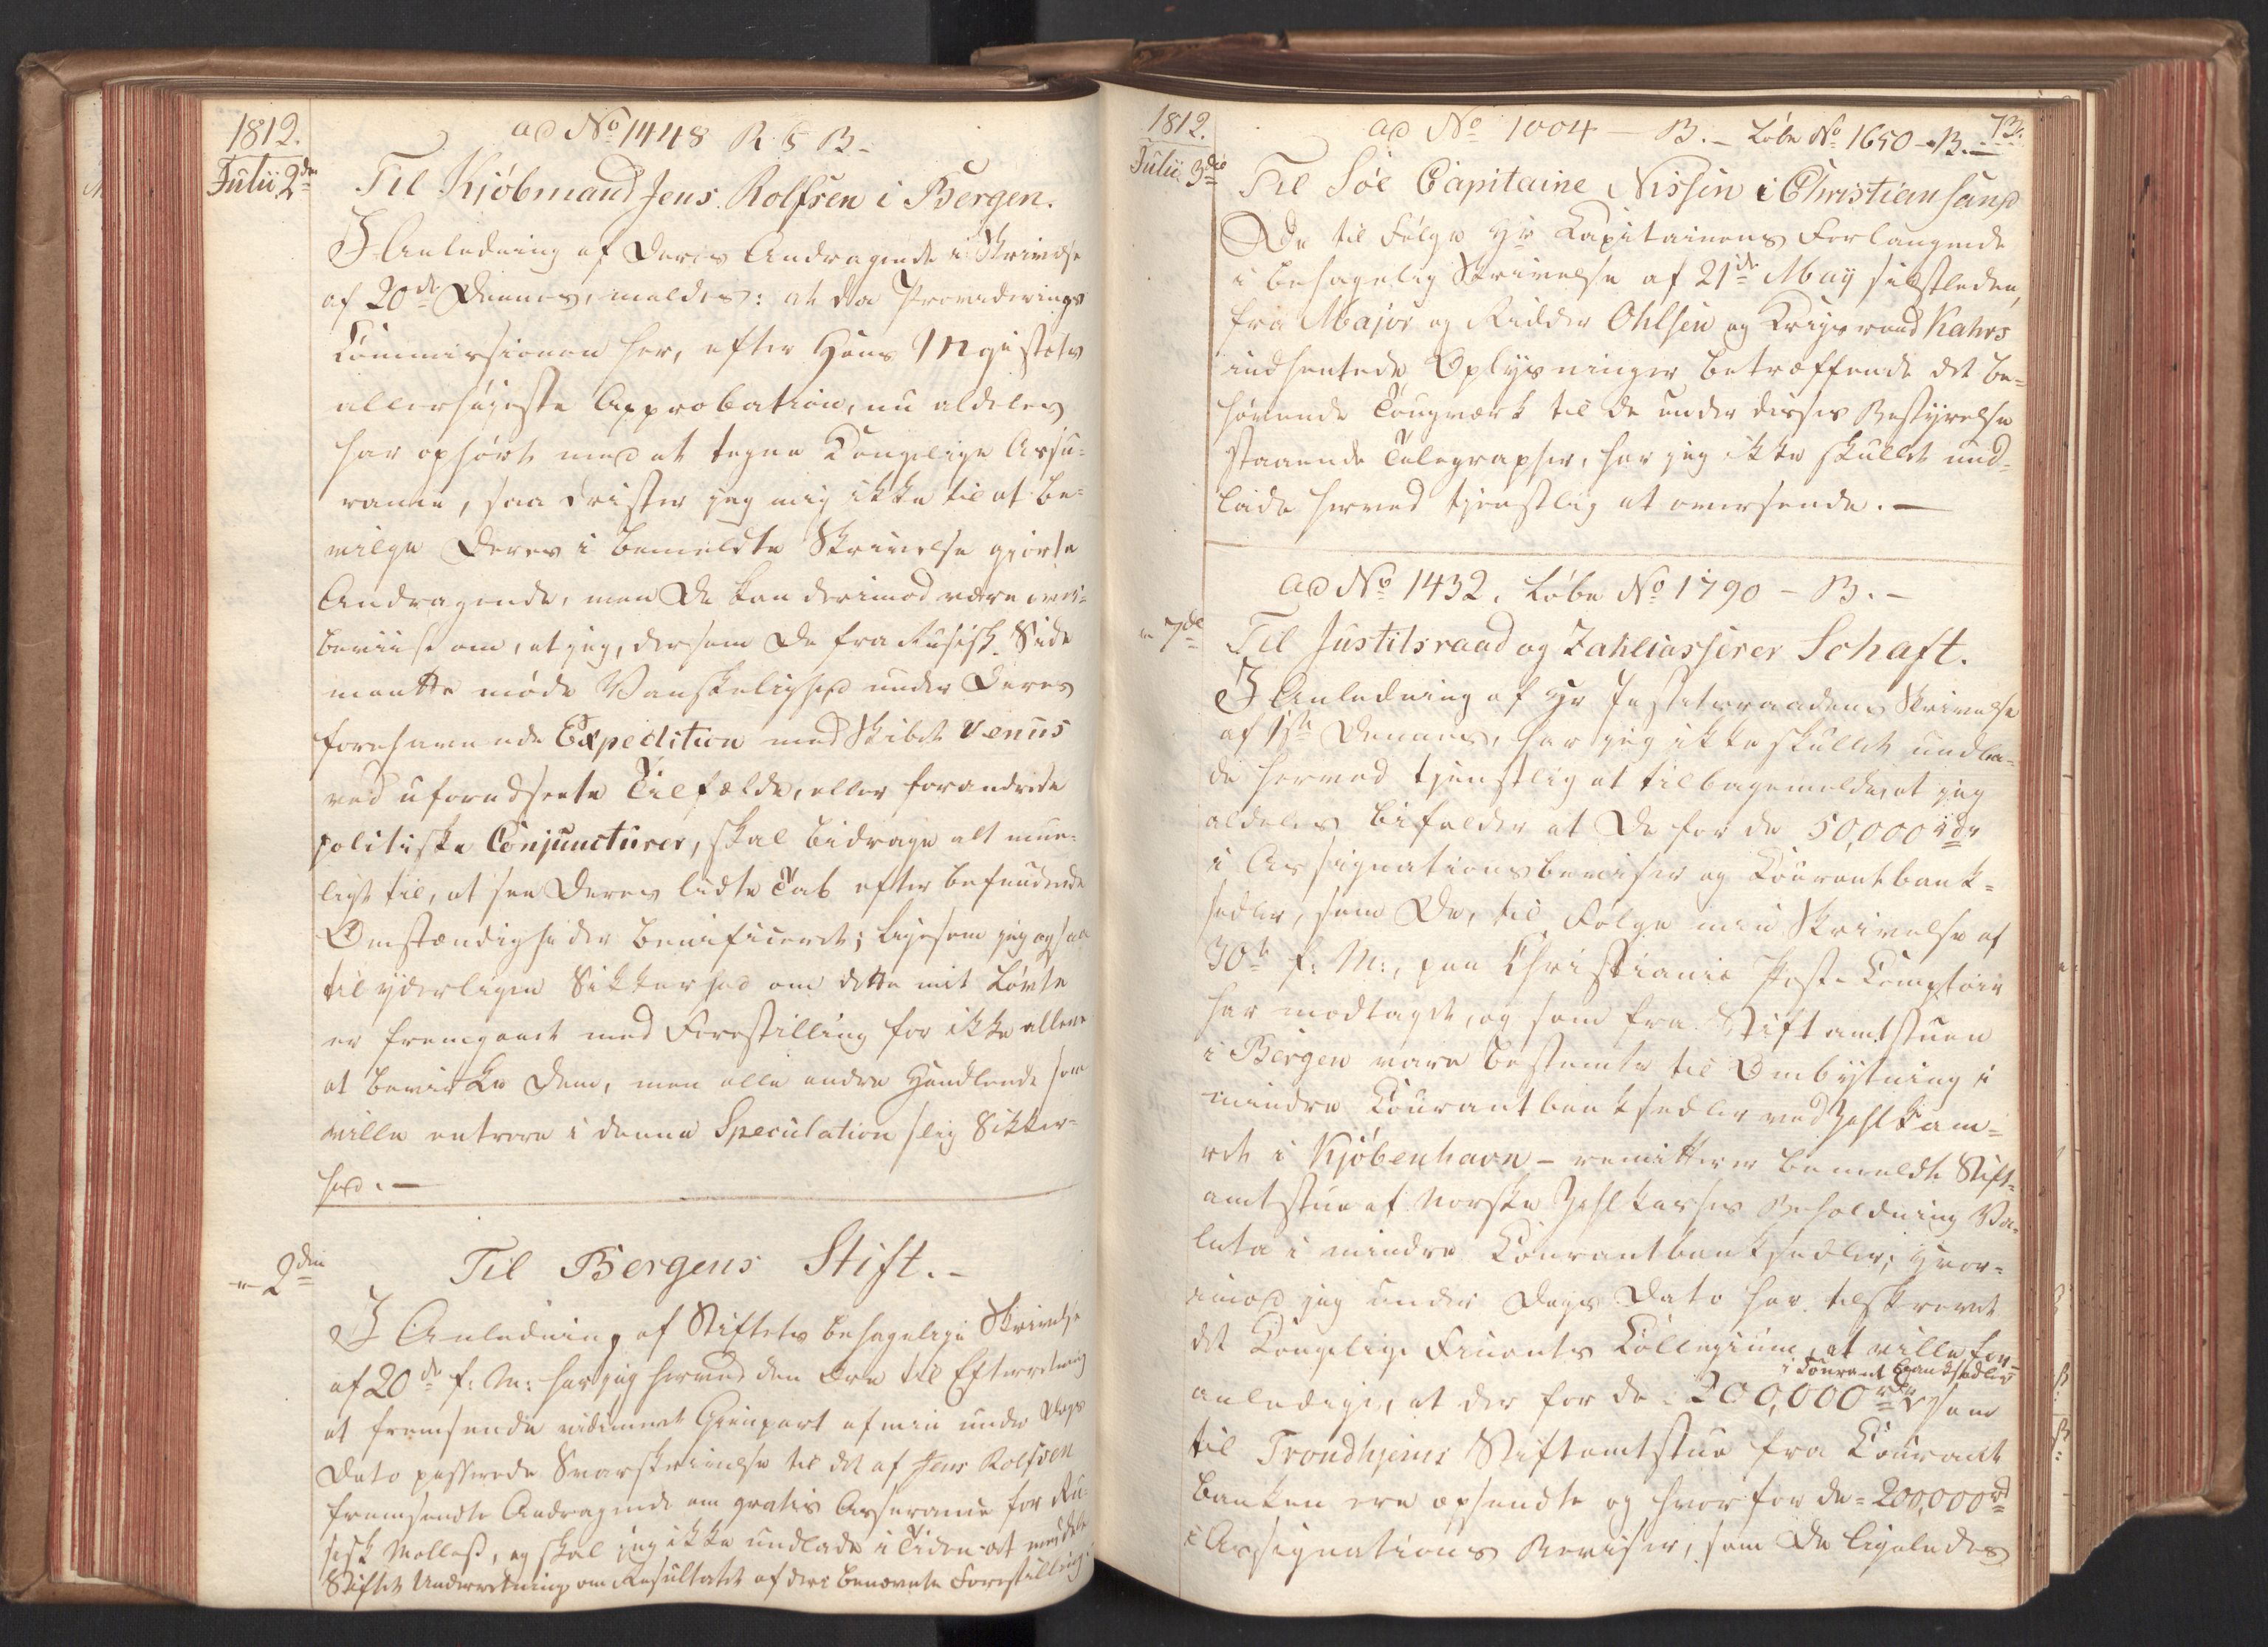 1812.
ad No 1448 R & B -
Julii 2den
Til Kjöbmand Jens Rolfsen i Bergen.
I Anledning af Deres Andragende i Skrivelse
af 20de Dennes, meldes: at da Provideringsÿ
Commissionen her, efter Hans Majestæts
allerhöjeste Approbation, nu aldeles
har ophört med at tegne Kongelige Assu=
rance, saa drister jeg mig ikke til at be=
vilge Deres i bemeldte Skrivelse giorte
Andragende, men De kan derimod være over=
beviist om, at jeg, dersom De fra Rusisk Side
maatte möde Vanskelighed under Deres
forehavende Expedition med Skibet Venus
ved uforudseete Tilfælde, eller forandrede
politiske Conjuncturer, skal bidrage alt mue=
ligt til, at see Deres lidte Tab efter befindende
Omstændigheder benificeret; ligesom jeg ogsaa
til yderligere Sikkerhed om dette mit Löfte
er fremgaaet med Forestilling for ikke allene
at bevirke Dem, men alle andre Handlende som
ville entrere i denne Speculation slig Sikker=
hed. —
- 2den
Til Bergens Stift. -
I Anledning af Stiftets behagelige Skrivelse
af 20de f: M: har jeg herved den Ære til Efterretning
at fremsende vidimeret Gienpart af min under Dags
Dato passerede Svarskrivelse til det af Jens Rolfsen
fremsendte Andragende om gratis Assurance for Ru=
sisk , og skal jeg ikke undlade i Tiden at meddele
Stiftet Underretning om Resultatet af den benævnte Forestilling.
1812.
ad No 1004 - B. - Löbe No 1650 - B. -
73.
Julii 3die
Til Söe Capitaine Nissen i Christiansand
De til Fölge Hr Kapitainens Forlangende
i behagelig Skrivelse af 21de May sidstleden,
fra Major og Ridder Ohlsen og Krigsraad Kahrs
indhentede Oplysninger betræffende det be=
hövende Tougværk til de under disses Bestyrelse
staaende Telegrapher, har jeg ikke skullet und=
lade herved tjenstlig at oversende. —
ad No 1432. Löbe No 1790 - B. -
- 7de
Til Justitsraad og Zahlcasserer Schaft.
I Anledning af Hr Justitsraadens Skrivelse
af 1ste Dennes, har jeg ikke skullet undla=
de herved tjenstlig at tilbagemelde, at jeg
aldeles bifalder at De for de 50,000 rdr
i Assignationsbeviser og Courantbank=
sedler, som De, til Fölge min Skrivelse af
30te f: M:, paa Christianie Post-Comptoir
har modtaget, og som fra Stiftamtstuen
i Bergen vare bestemte til Ombytning i
mindre Courantbanksedler ved Zahlkam=
ret i Kjöbenhavn - remitterer bemeldte Stift=
amtstue af Norske Zahlkasses Beholdning Va=
luta i mindre Courantbanksedler; hvor=
imod jeg under Dags Dato har tilskrevet
det Kongelige Finants Collegium, at ville for=
i Courant Banksedler
anledige, at der for de 200,000 rdr som
til Trondhjems Stiftamtstue fra Courant
banken ere opsendte og hvorfor de = 200,000 rd
i Assignations Beviser, som De ligeledes